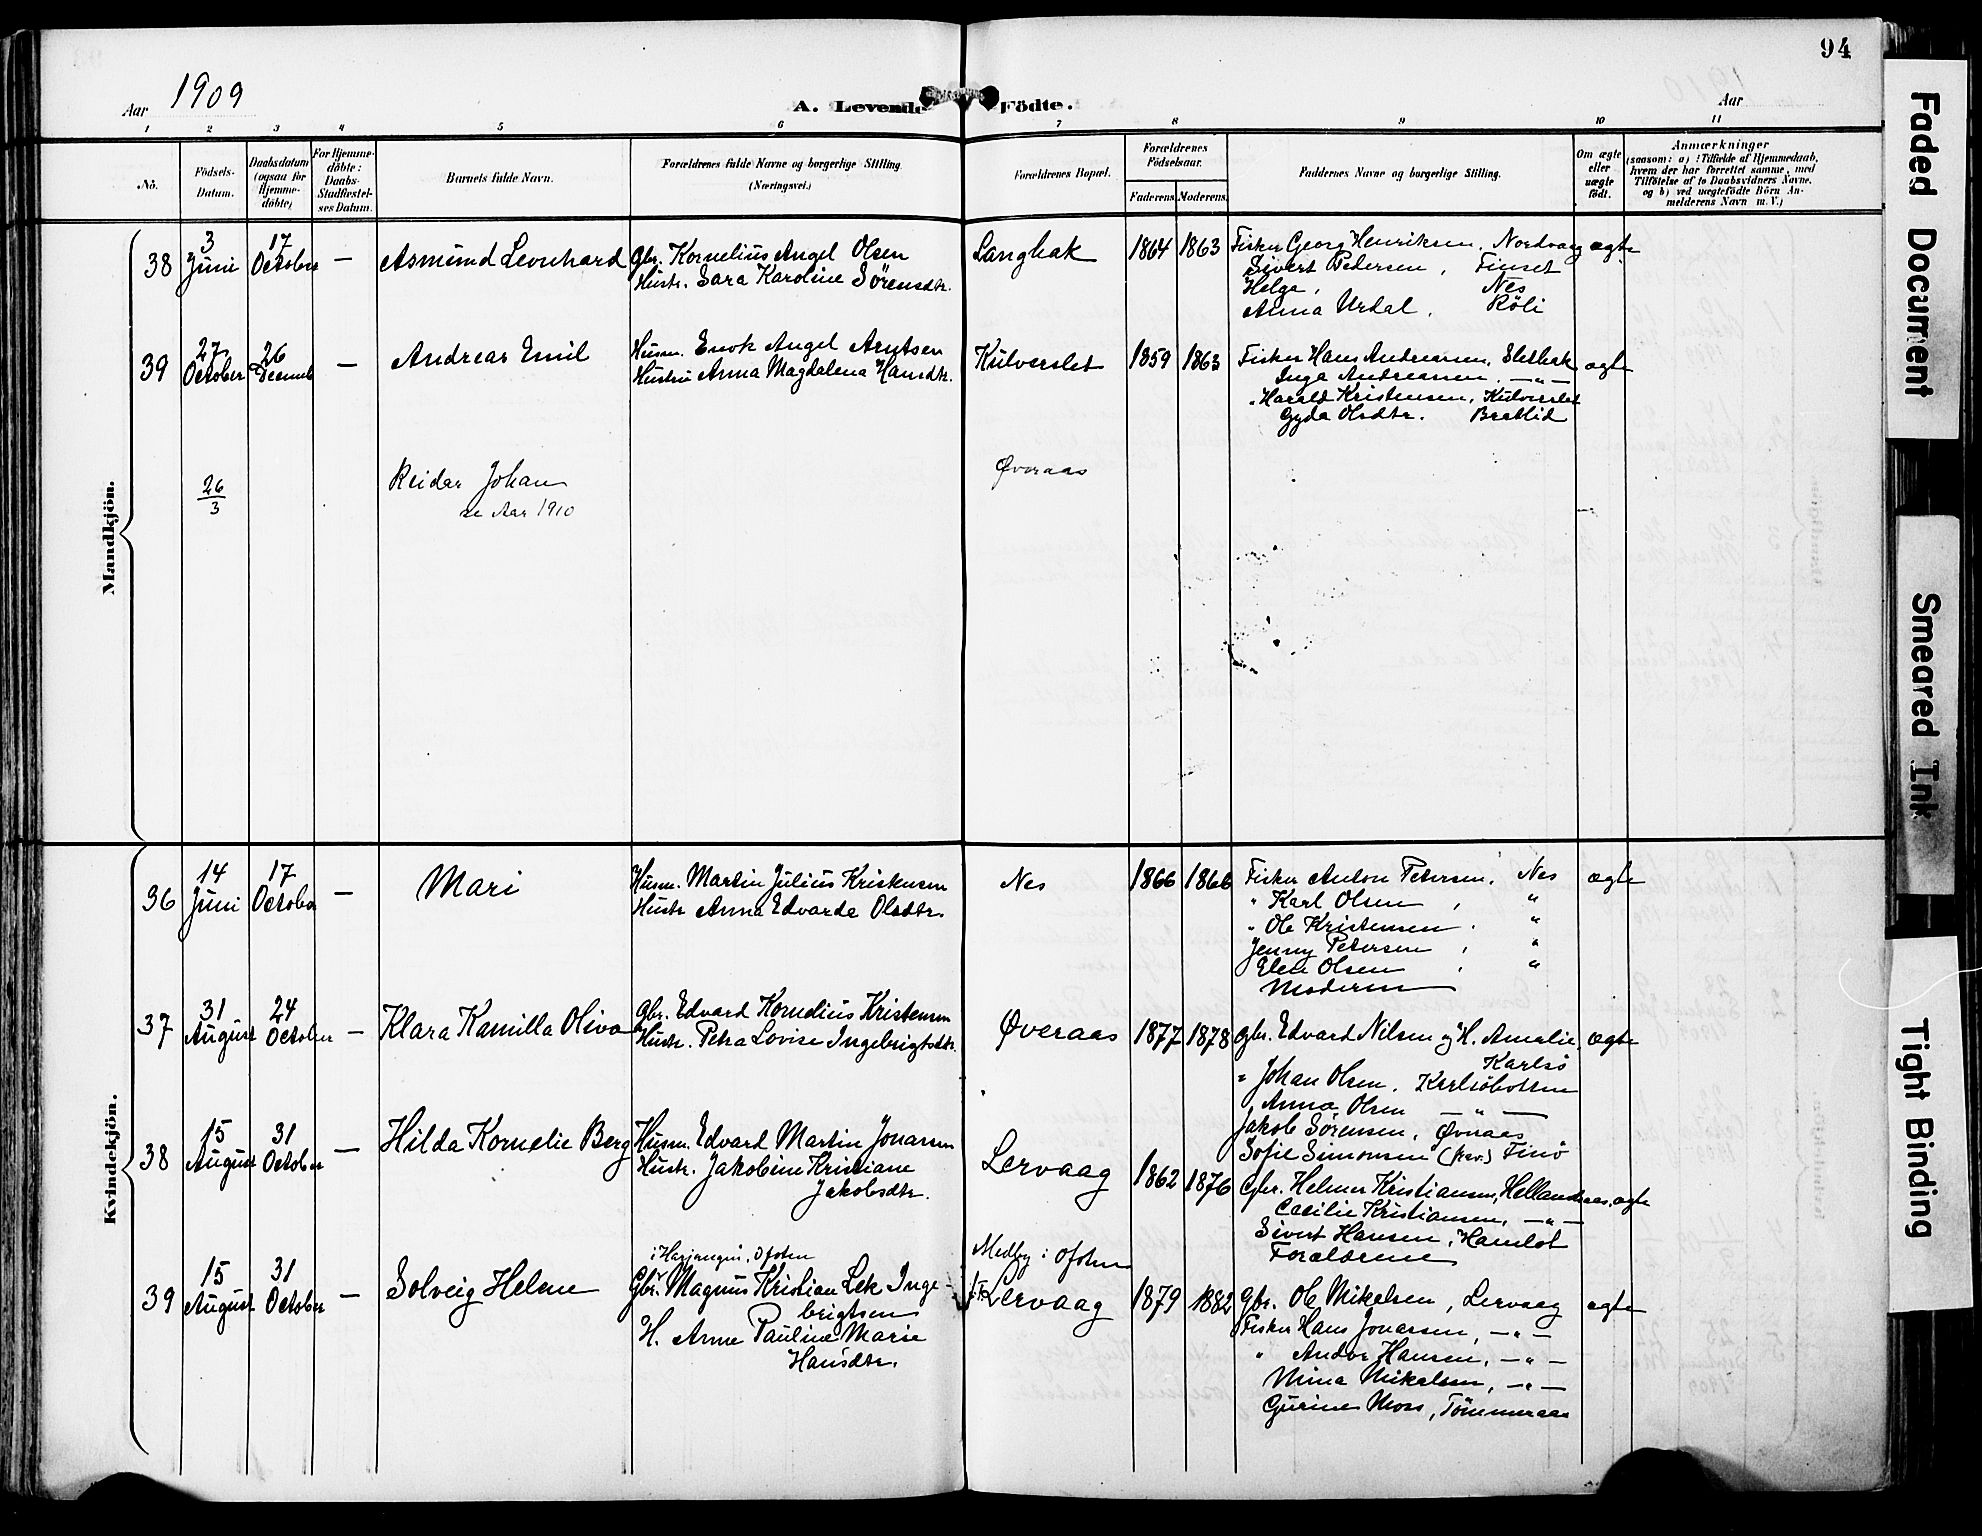 94
Aar 1909
A. Levende Födte.
Aar
1 2 3 4 5 6 7 8 9 10 11
No.
Födsels-
Datum.
Daabsdatum
(ogsaa for
Hjemme-
döbte)
For Hjemme-
döbte:
Daabs-
Stadfæstel-
ses Datum.
Barnets fulde Navn.
Forældrenes fulde Navne og borgerlige Stilling.
(Næringsvei.)
Forældrenes Bopæl.
Forældrenes
Födselsaar.
Faderens Moderens.
Faddernes Navne og borgerlige Stilling.
Om ægte
eller
uægte
födt.
Anmærkninger
(saasom: a) i Tilfælde af Hjemmedaab,
hvem der har forrettet samme, med
Tilföielse af to Daabsvidners Navne,
og b) ved uægtefödte Börn An-
melderens Navn m. V.)
Mandkjön.
38
3
Juni
17
October
—
Asmund Leonhard
Gbr. Kornelius Angel Olsen
Hustr. Sara Karoline Sørensdtr.
Langbak
1864 1863
Fisker Georg Henriksen, Nordvaag
Sivert Pedersen, Finset
Helga, Nes
Anna Urdal, Röli
ægte
39
27
October
26
Decemb
—
Andreas Emil
Husm. Enok Angel Arntsen
Hustru Anna Magdalena Hansdtr.
Kulverslet
1859 1863
Fisker Hans Andreassen, Sletbak
Inga Andreassen —"—
" Harald Kristensen, Kulverslet
Gyda Olsdtr. Bratlid
ægte
26
3
Reidar Johan
se Aar 1910
Øveraas
Kvindekjön.
36
14
Juni
17
October
—
Mari
Husm. Martin Julius Kristensen
Hustr Anna Edvarda Olsdtr.
Nes
1866 1866
Fisker Anton Petersen, Nes
" Karl Olsen, "
" Ole Kristensen, "
Jenny Petersen, "
Elen Olsen, "
Moderen
ægte
37
31
August
24
October
—
Klara Kamilla Oliva
Gbr. Edvard Kornelius Kristensen
Hustr. Petra Lovise Ingebrigtsdtr.
Øveraas
1877 1878
Gbr. Edvard Nilsen og H. Amalie,
Karlsö
" Johan Olsen, Karlsöbotten
Anna Olsen —"—
Jakob Sørensen, Øvraas
Sofie Simonsen Finö
ægte
38
15
August
31
October
—
Hilda Kornelie Berg
Husm. Edvard Martin Jonassen
Hustr. Jakobine Kristiane
Jakobsdtr.
Lervaag
1862 1876
Gbr. Helmer Kristiansen, Hellandsaas,
Cæcilie Kristiansen, —"—
Sivert Hansen, Hamlot
Forældrene
ægte
39
15
August
31
October
—
Solveig Helene
i Harjangen, Ofoten
Gbr. Magnus Kristian Lek Inge-
brigtsen
H. Anne Pauline Marie
Hansdtr.
Medby i Ofoten
Lervaag
1879 1882
Gbr. Ole Mikalsen, Lervaag
Fisker Hans Jonassen, —"—
" Andor Hansen, —"—
Mina Mikalsen, —"—
Gurine Moss, Tömmeraas
ægte
Faded Document
Smeared Ink
Tight Binding